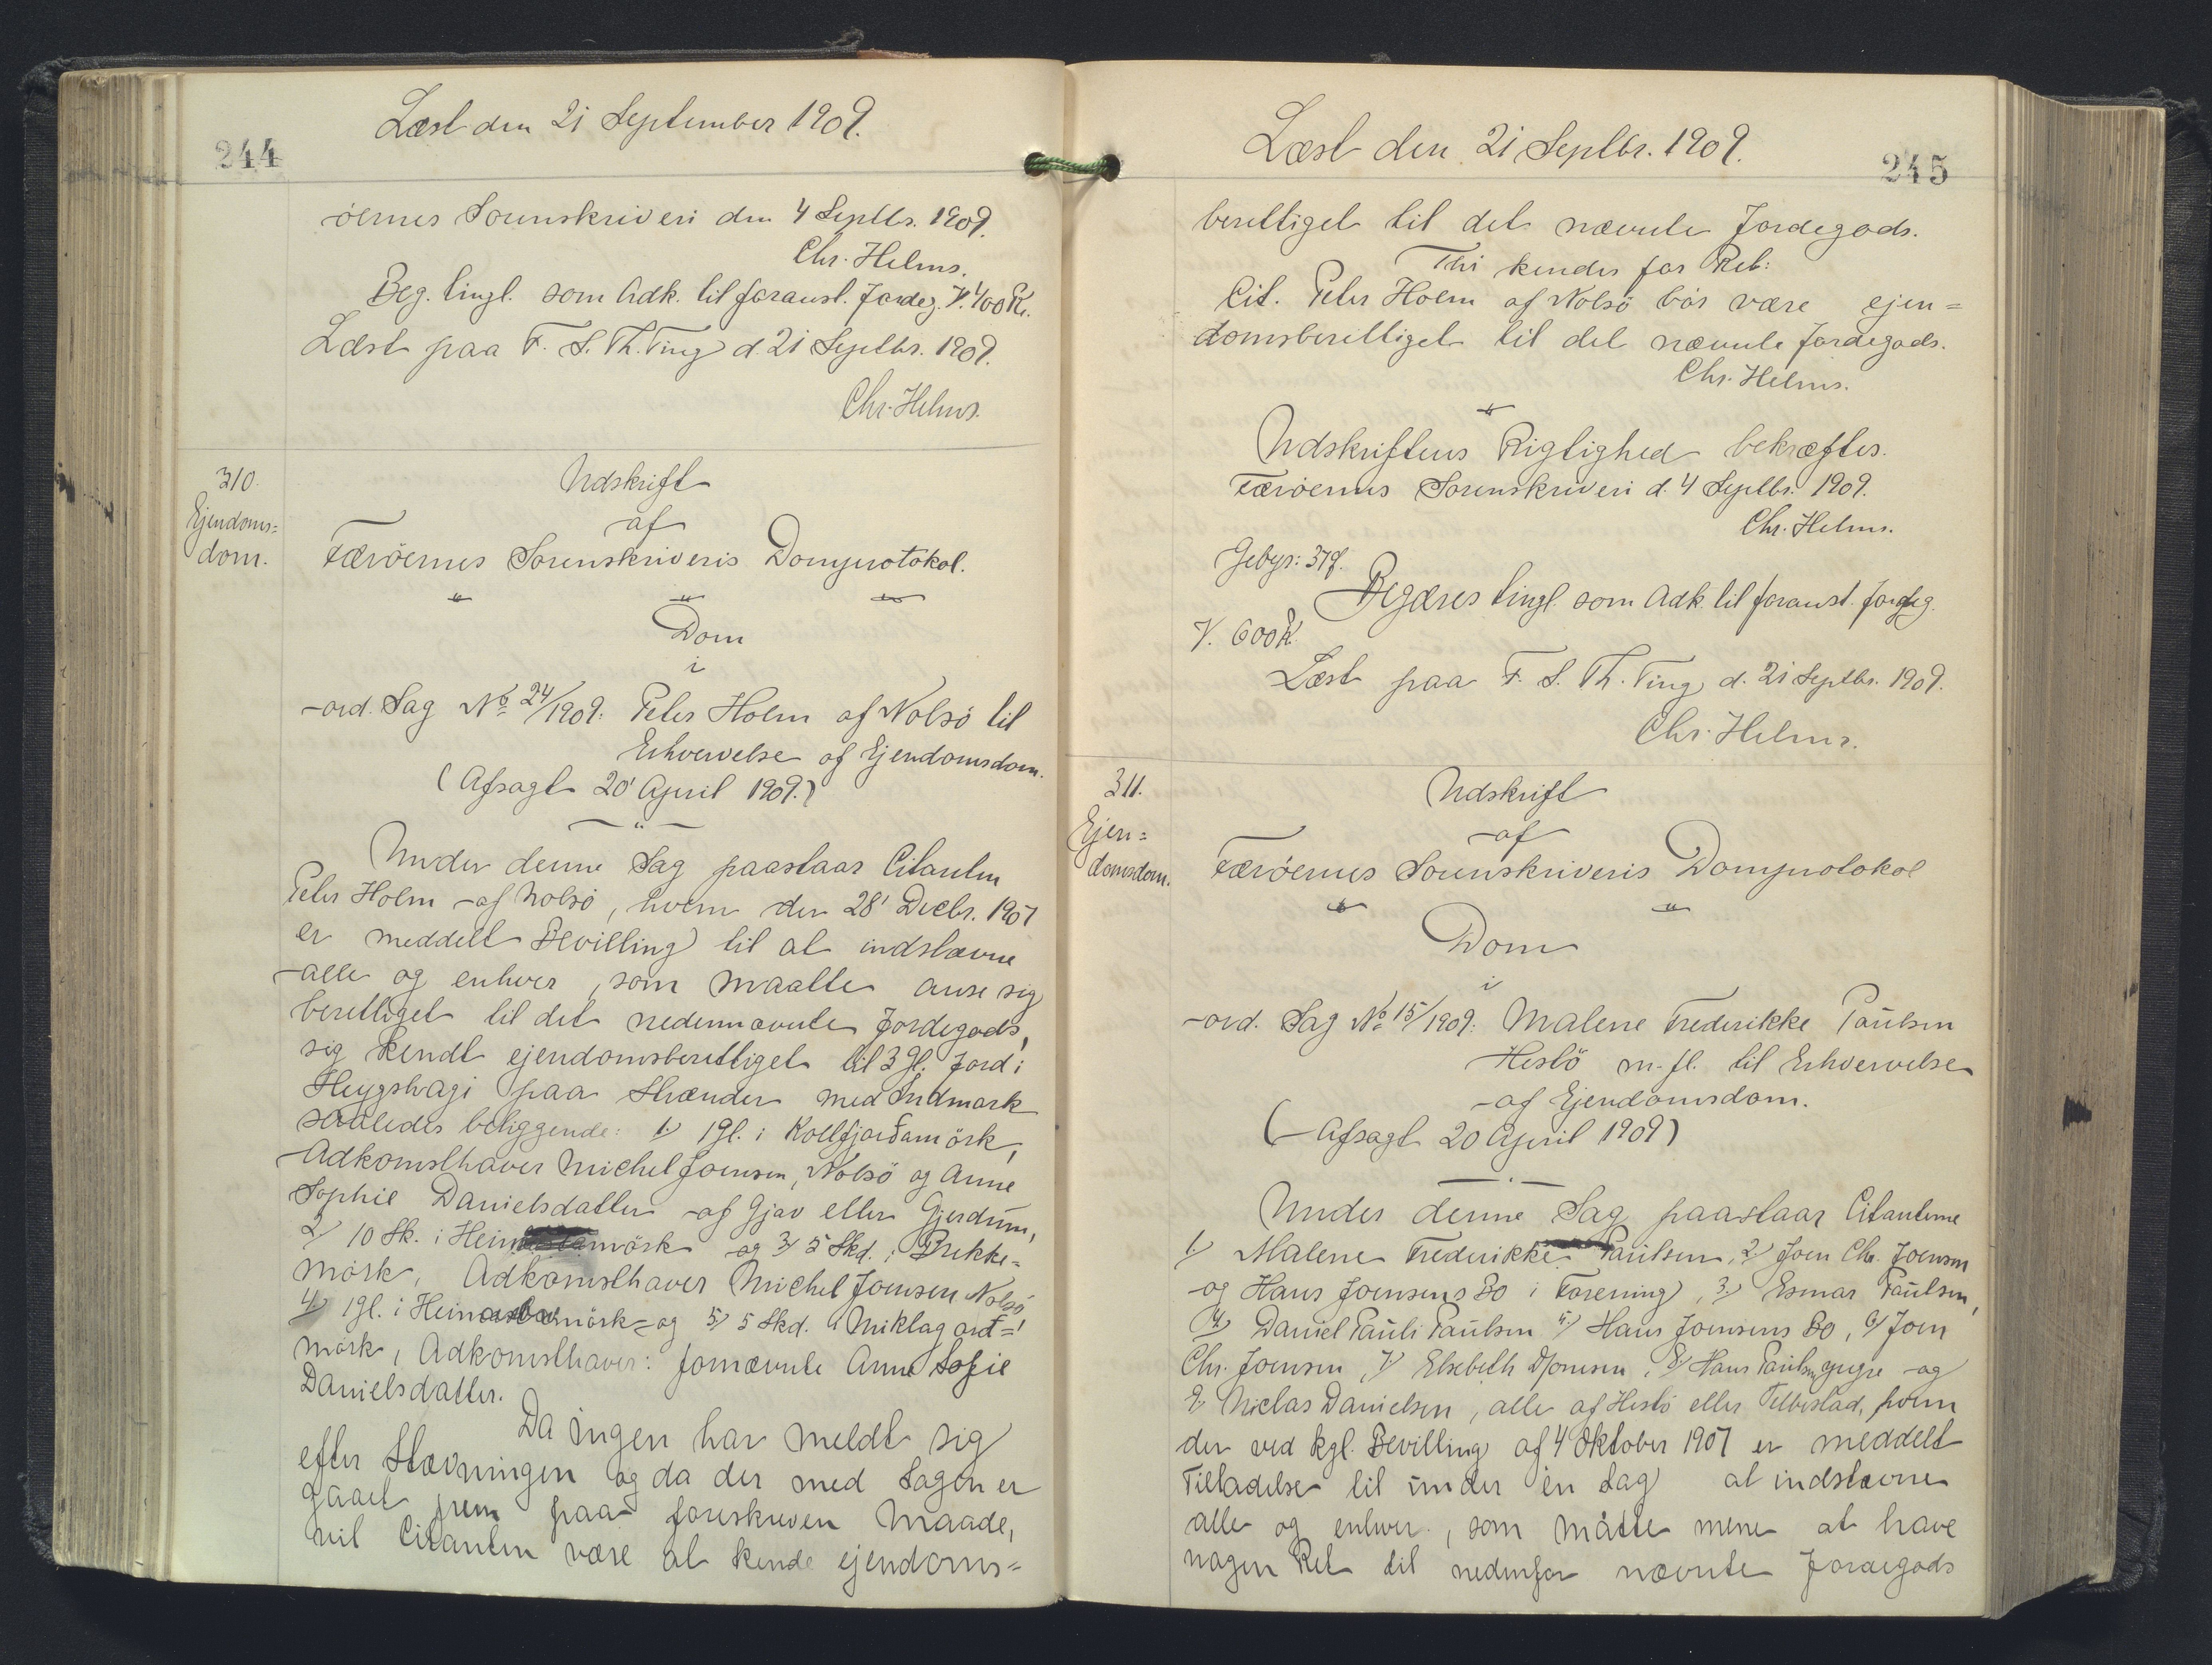 244
Læst den 21 September 1909.
öernes Sorenskriveri den 4 Septbr. 1909.
Chr. Helms.
Beg. tingl. som Adk. til foranst. Jordeg. V. 400 Kr.
Læst paa F. S. Th. Ting d. 21 Septbr. 1909.
Chr. Helms.
310.
Ejendoms=
dom.
Udskrift
af
Færöernes Sorenskriveris Domprotokol.
Dom
i
ord. Sag No 24/1909: Peter Holm af Nolsö til
Erhvervelse af Ejendomsdom.
(Afsagt 20' April 1909.)
Under denne Sag paastaar Citanten
Peter Holm af Nolsö, hvem der 28' Decbr. 1907
er meddelt Bevilling til at indstævne
alle og enhver, som maatte anse sig
berettiget til det nedennævnte Jordegods,
sig kendt ejendomsberettiget til 3 gl. Jord i
Heygshagi paa Strænder med Indmark
saaledes beliggende: 1) 1 gl. i Kollfjarðamörk,
Adkomsthaver Michel Joensen, Nolsö og Anne
Sophie Danielsdatter af Gjov eller Gjerdum,
2) 10 Sk. i Heimamörk og 3) 5 Skd. i Brekke=
mörk, Adkomsthaver Michel Joensen Nolsö
4) 1 gl. i Heimamörk og 5) 5 Skd. i Miklagard=
mörk, Adkomsthaver: fornævnte Anne Sofie
Danielsdatter.
Da ingen har meldt sig
efter Stævningen og da der med Sagen er
gaaet frem paa foreskreven Maade,
vil Citanten være at kende ejendoms=
245
Læst den 21 Septbr. 1909.
berettiget til det nævnte Jordegods.
Thi kendes for Ret:
Cit. Peter Holm af Nolsö bör være ejen=
domsberettiget til det nævnte Jordegods.
Chr. Helms.
Udskriftens Rigtighed bekræftes.
Færöernes Sorenskriveri d. 4 Septbr. 1909.
Chr. Helms.
Gebyr:
Begæres tingl. som Adk. til foranst. Jordeg.
V. 600 K.
Læst paa F. S. Th. Ting d. 21 Septbr. 1909.
Chr. Helms.
311.
Ejen=
domsdom.
Udskrift
af
Færöernes Sorenskriveris Domprotokol
Dom
i
ord. Sag No 15/1909: Malene Frederikke Paulsen
Hestö m. fl. til Erhvervelse
af Ejendomsdom.
(Afsagt 20 April 1909)
Under denne Sag paastaar Citanterne
1) Malene Frederikke Paulsen, 2) Joen Chr. Joensen
og Hans Joensens Bo i Forening, 3) Esmar Paulsen,
4) Daniel Pauli Paulsen 5) Hans Joensens Bo, 6) Joen
Chr. Joensen, 7) Elsebeth Joensen, 8) Hans Paulsen yngre og
9) Niclas Danielsen, alle af Hestö eller Velbestad, hvem
der ved kgl. Bevilling af 4 Oktober 1907 er meddelt
Tilladelse til under en Sag at indstævne
alle og enhver, som måtte mene at have
nogen Ret til nedenfor nævnte Jordegods